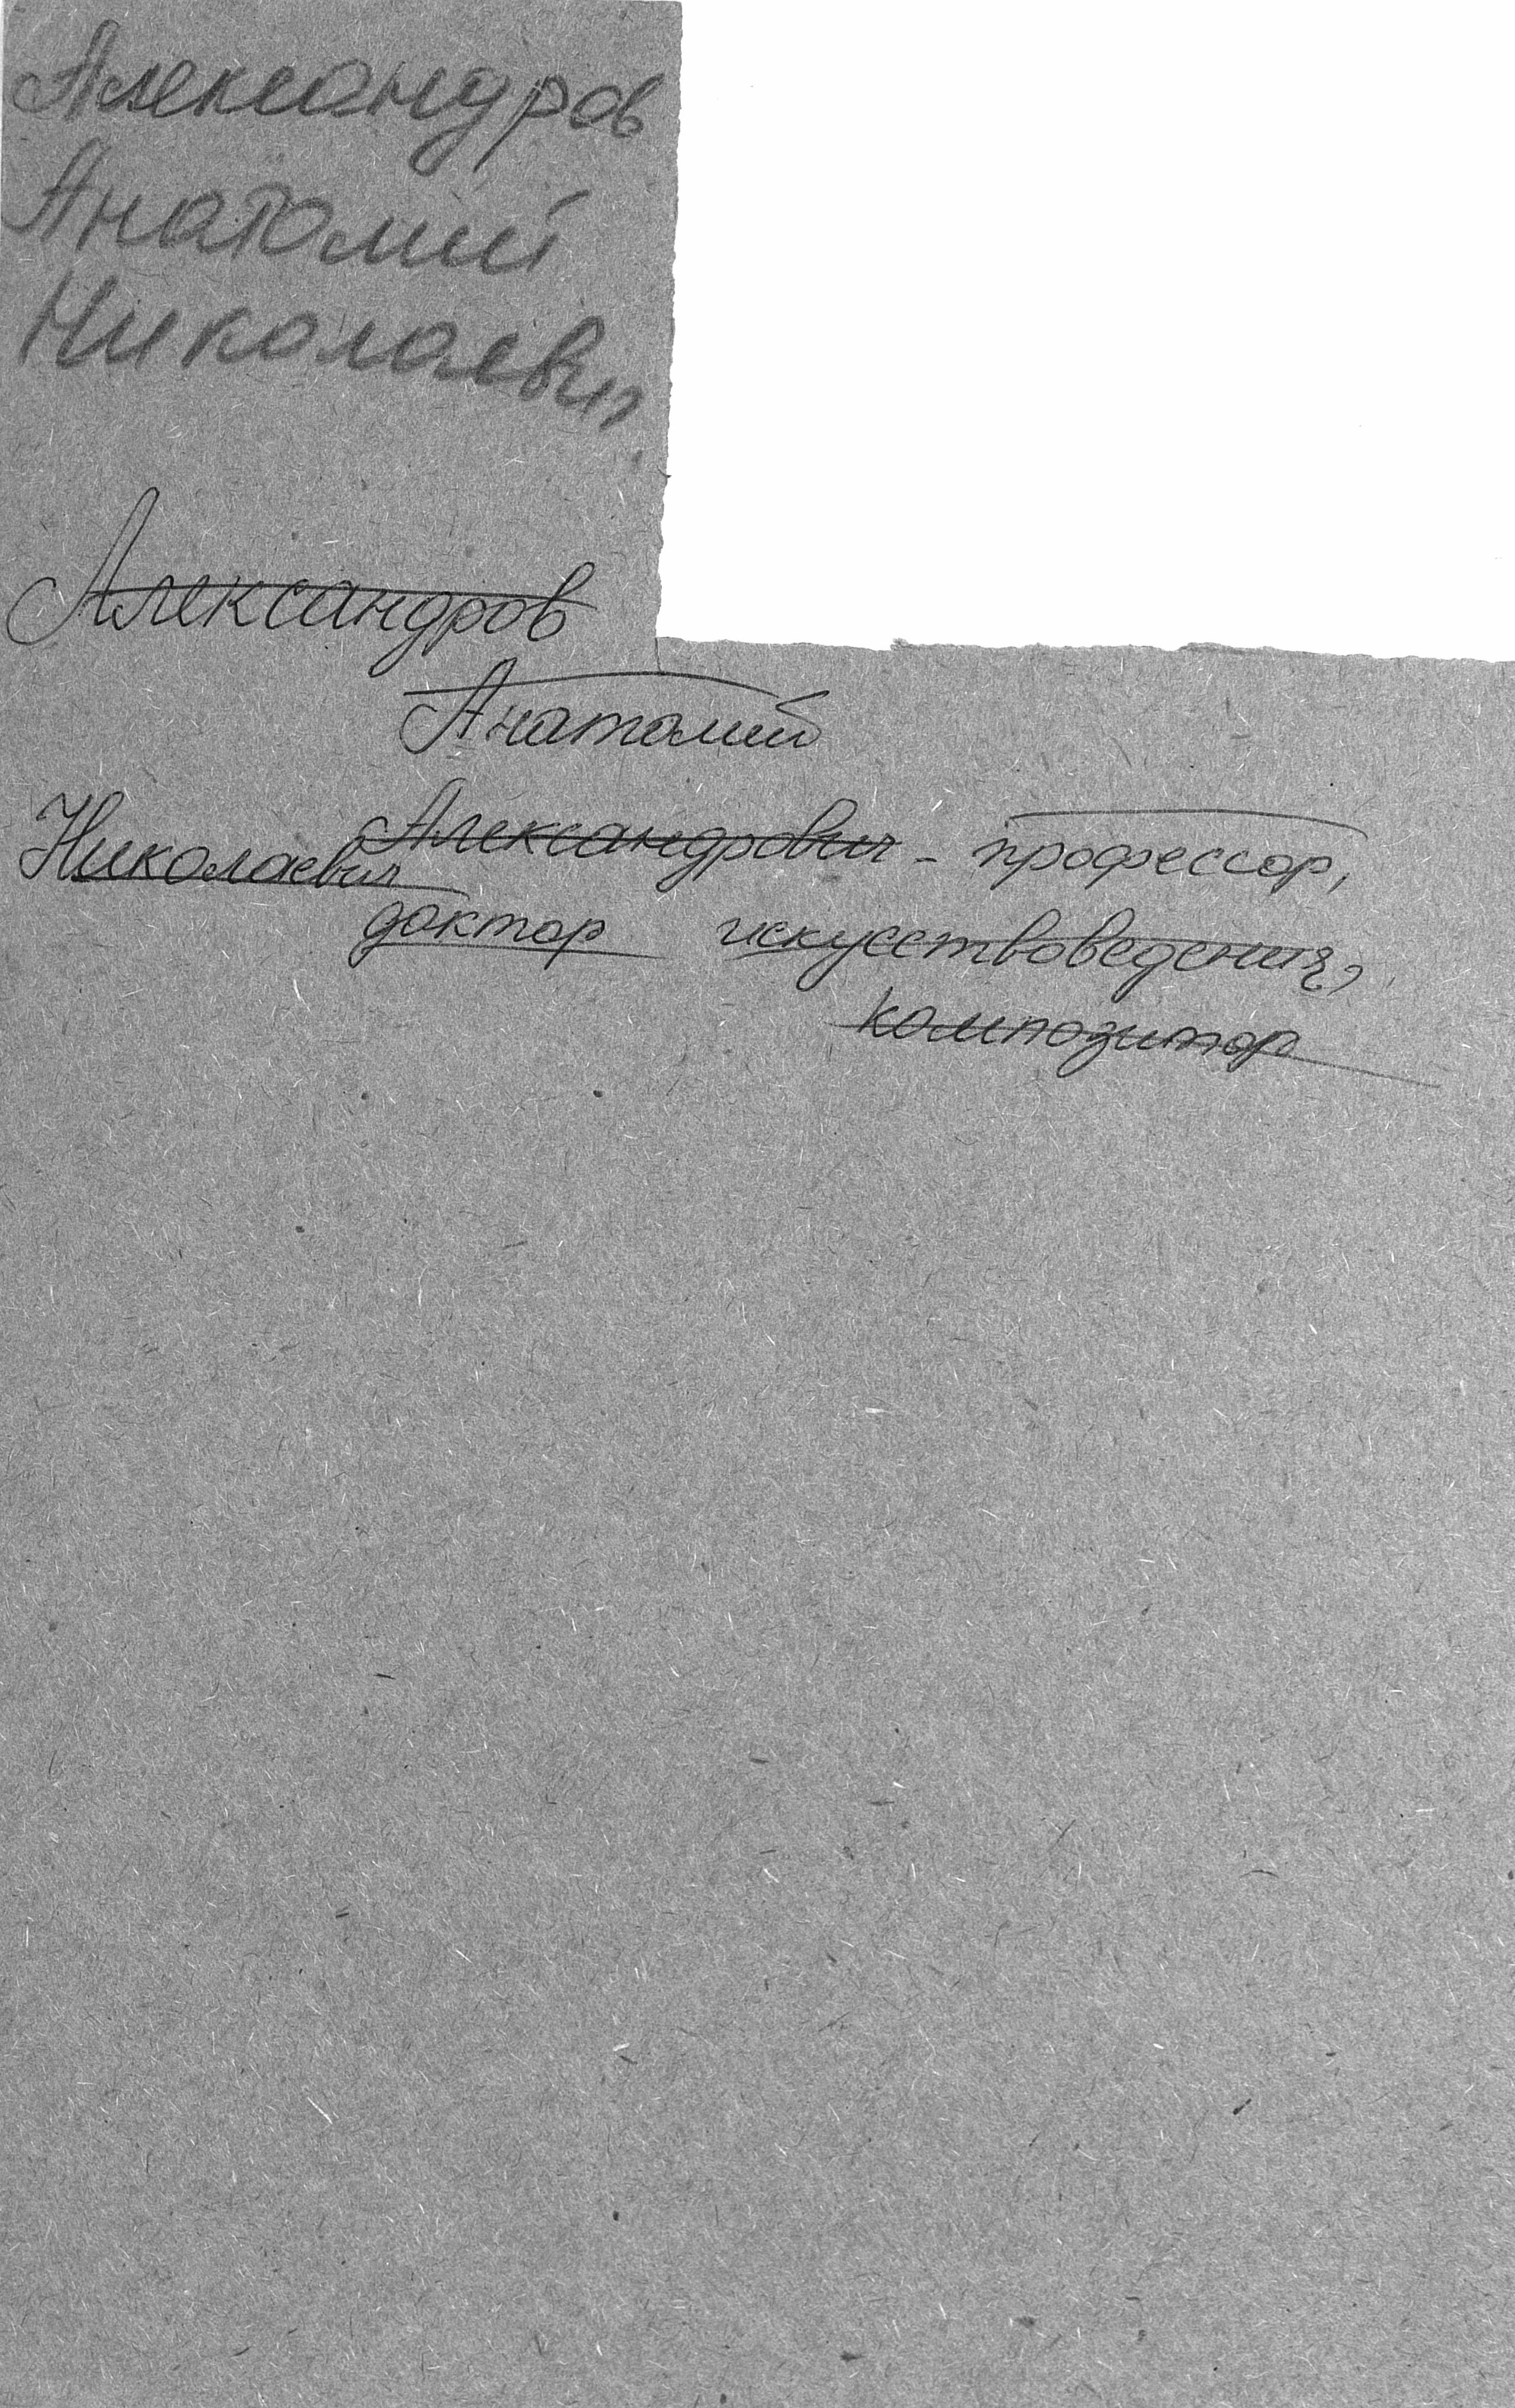 Александров
Анатолий
Николаевич
Александров
Анатолий
Николаевич Александрович - профессор,
доктор искусствоведения,
композитор